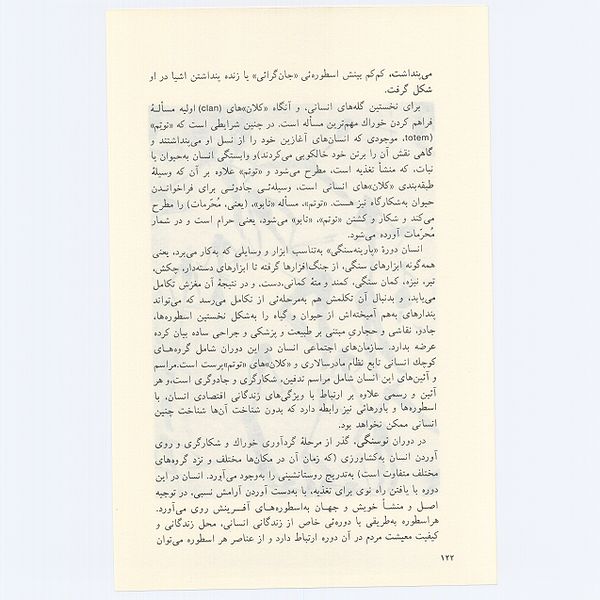 می‌پنداشت. کم‌کم بینش اسطوره‌ئی «جان‌گرائی» یا زنده پنداشتن اشیا در او
شکل گرفت.
برای نخستین گله‌های انسانی، و آنگاه «کلان»های (clan) اولیه مسألهٔ
فراهم کردن خوراك مهم‌ترین مسأله است. در چنین شرایطی است که «توتِم»
(totem، موجودی که انسان‌های آغازین خود را از نسل او می‌پنداشتند و
گاهی نقش آن را برتن خود خالکوبی می‌کردند) و وابستگی انسان به‌حیوان یا
نبات، که منشأ تغذیه است، مطرح می‌شود و «توتِم» علاوه بر آن که وسیلهٔ
طبقه‌بندی «کلان»های انسانی است، وسیله‌ئی جادوئی برای فراخواندن
حیوان به‌شکارگاه نیز هست. «توتم»، مسأله «تابو»، (یعنی، مُحَرّمات) را مطرح
می‌کند و شکار و کشتن «توتم»، «تابو» می‌شود، یعنی حرام است و در شمار
مُحرّمات آورده می‌شود.
انسان دورهٔ «پارینه‌سنگی» به‌تناسب ابزار و وسایلی که به‌کار می‌برد، یعنی
همه‌گونه ابزارهای سنگی، از جنگ‌افزارها گرفته تا ابزارهای دسته‌دار، چکش،
تبر، نیزه، کمان سنگی، کمند و متهٔ کمانی،دست، و در نتیجهٔ آن مغزش تکامل
می‌یابد، و بدنبال آن تکلمش هم به‌مرحله‌ئی از تکامل می‌رسد که می‌تواند
پندارهای به‌هم آمیخته‌اش از حیوان و گیاه را به‌شکل نخستین اسطوره‌ها،
جادو، نقاشی و حجاری مبتنی بر طبیعت و پزشکی و جراحی ساده بیان کرده
عرضه بدارد. سازمان‌های اجتماعی انسان در این دوران شامل گروه‌های
کوچك انسانی تابع نظام مادرسالاری و «کلان»های «توتم»پرست است.مراسم
و آئین‌های این انسان شامل مراسم تدفین، شکارگری و جادوگری است،و هر
آئین و رسمی علاوه بر ارتباط با ویژگی‌های زندگانی اقتصادی انسان، با
اسطوره‌ها و باورهائی نیز رابطه دارد که بدون شناخت آن‌ها شناخت چنین
انسانی ممکن نخواهد بود.
در دوران نوسنگی، گذر از مرحلهٔ گردآوری خوراك و شکارگری و روی
آوردن انسان به‌کشاورزی (که زمان آن در مکان‌ها مختلف و نزد گروه‌های
مختلف متفاوت است) به‌تدریج روستانشینی را به‌وجود می‌آورد. انسان در این
دوره با یافتن راه نوی برای تغذیه، با به‌دست آوردن آرامش نسبی، در توجیه
اصل و منشأ خویش و جهان به‌اسطوره‌های آفرینش روی می‌آورد.
هراسطوره به‌طریقی با دوره‌ئی خاص از زندگانی انسانی، محل زندگانی و
کیفیت معیشت مردم در آن دوره ارتباط دارد و از عناصر هر اسطوره می‌توان
۱۲۲